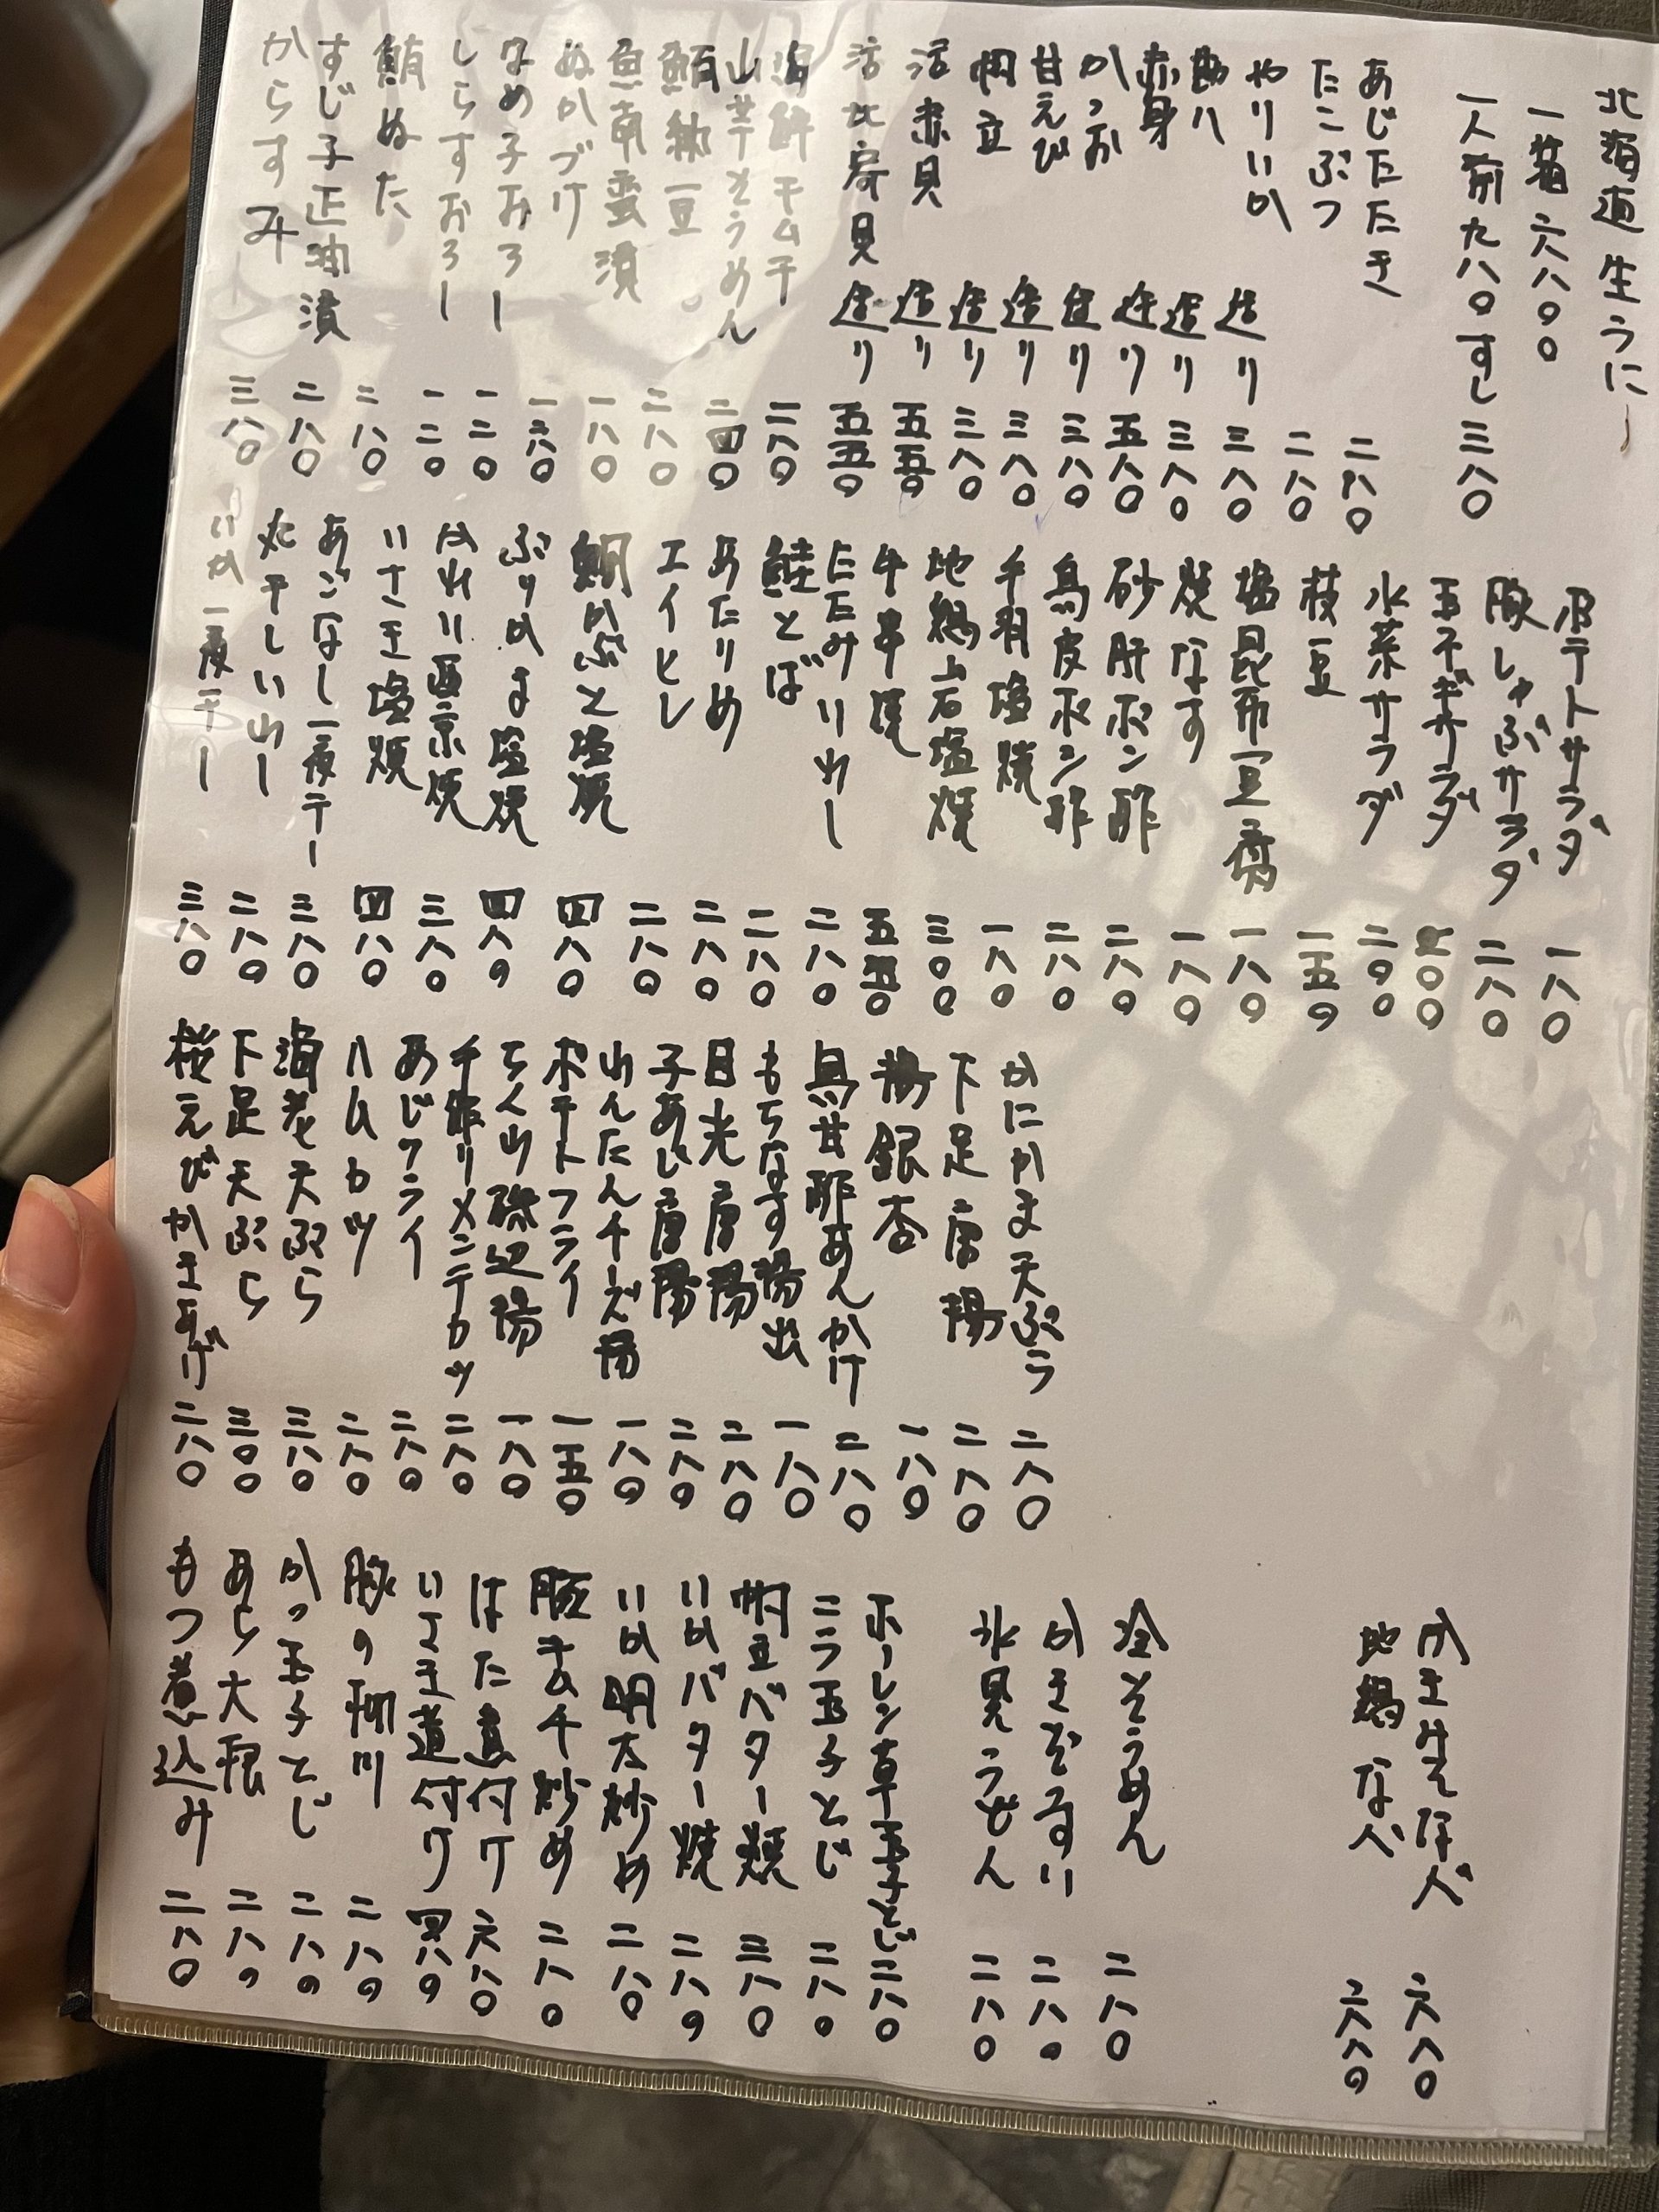 北海道生うに
一箱六八〇〇
一人前九八〇すし三八〇
あじたたき 二八〇
たこぶつ 二八〇
やりいか造り 三八〇
勘八造り 三八〇
赤身造り 五八〇
かつお造り 三八〇
甘えび造り 三八〇
帆立造り 三八〇
活赤貝造り 五五〇
活北寄貝造り 五五〇
海鮮キムチ 二八〇
山芋そうめん 二四〇
鮪納豆 二八〇
魚南蛮漬 一八〇
ぬかづけ
なめ子おろし 一二〇
しらすおろし 一二〇
鮪ぬた 二八〇
すじ子正油漬 二八〇
からすみ 三八〇
ポテトサラダ 一八〇
豚しゃぶサラダ 二八〇
玉ネギサラダ
水菜サラダ 二〇〇
枝豆 一五〇
塩昆布豆腐 一八〇
焼なす 一八〇
砂肝ポン酢 二八〇
鳥皮ポン酢 二八〇
手羽塩焼 一八〇
地鶏岩塩焼 三〇〇
牛串焼 五五〇
たたみいわし 二八〇
鮭とば 二八〇
あたりめ 二八〇
エイヒレ 二八〇
鯛かぶと塩焼 四八〇
ぶりかま塩焼 四八〇
かれい西京焼 三八〇
いさき塩焼 四八〇
あごなし一夜干し 三八〇
丸干しいわし 二八〇
いか一夜干し 三八〇
かにかま天ぷら 二八〇
下足唐揚 二八〇
揚銀杏 一八〇
鳥甘酢あんかけ 二八〇
もちなす揚出 一八〇
日光唐揚 二八〇
子あじ唐揚 二八〇
わんたんチーズ揚 一八〇
ポテトフライ 一五〇
ちくわ磯辺揚 一八〇
手作りメンチカツ 二八〇
あじフライ 二八〇
ハムカツ 二八〇
海老天ぷら 三八〇
下足天ぷら 三〇〇
桜えびかきあげ 二八〇
かき生姜なべ 六八〇
地鶏なべ 六八〇
冷そうめん 二八〇
かきぞうすい 二八〇
氷見うどん 二八〇
ホーレン草玉子とじ 二八〇
ニラ玉子とじ 二八〇
帆立バター焼 三八〇
いかバター焼 二八〇
いか明太炒め 二八〇
豚キムチ炒め 二八〇
はた煮付け 六八〇
いさき煮付け 四八〇
豚の柳川 二八〇
かつ玉子とじ 二八〇
あら大根 二八〇
もつ煮込み 二八〇